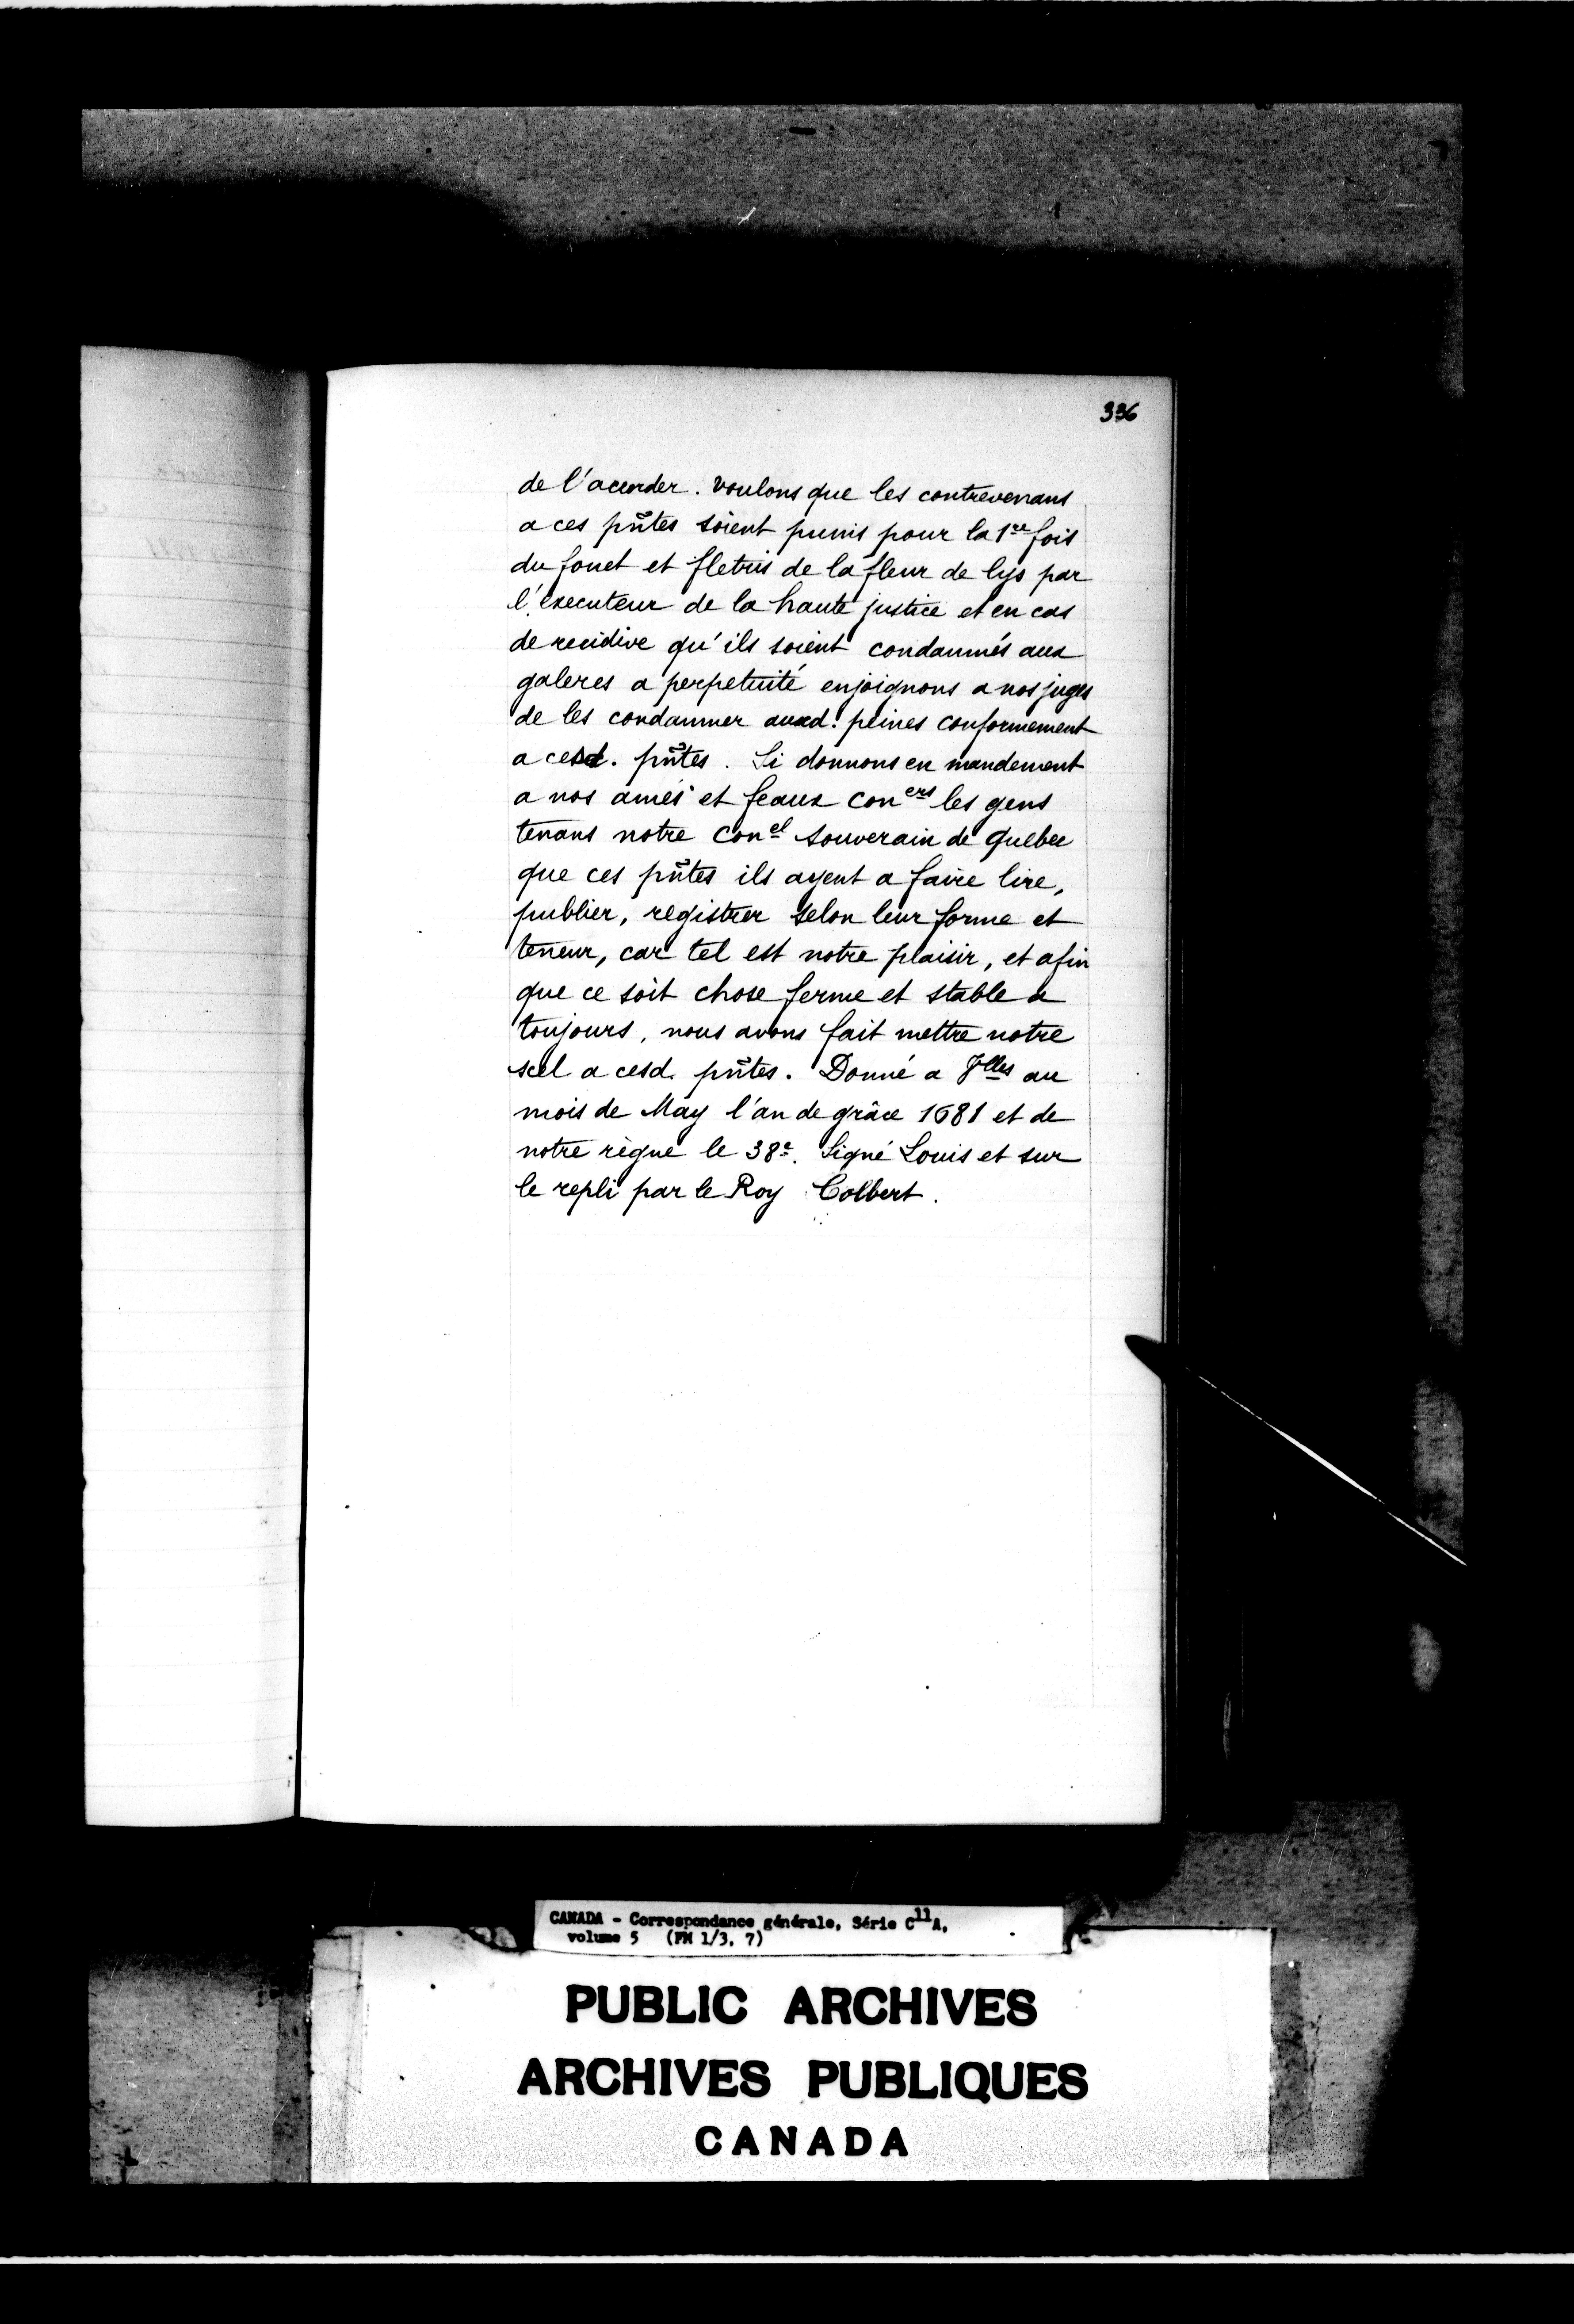 336
de l'accorder. voulons que les contrevenans
a ces pñtes soient punis pour la 1re fois
du fouet et fletris de la fleur de lys par
l'executeur de la haute justice et en cas
de recidive qu'ils soient condamnés aux
galeres a perpetuité enjoignons a nos juges
de les condamner auxd. peines conformement
a cesd. pñtes. Si donnons en mandement
a nos amés et feaux coners les gens
tenans notre conel souverain de Quebec
que ces pñtes ils ayent a faire lire,
publier, registrer selon leur forme et
teneur, car tel est notre plaisir, et afin
que ce soit chose ferme et stable a
toujours, nous avons fait mettre notre
scel a cesd. pñtes. Donné a Vlles au
mois de May l'an de grâce 1681 et de
notre règne le 38e. Signé Louis et sur
le repli par le Roy Colbert.
CANADA - Correspondance générale, Série C11A,
volume 5 (FM 1/3, 7)
PUBLIC ARCHIVES
ARCHIVES PUBLIQUES
CANADA